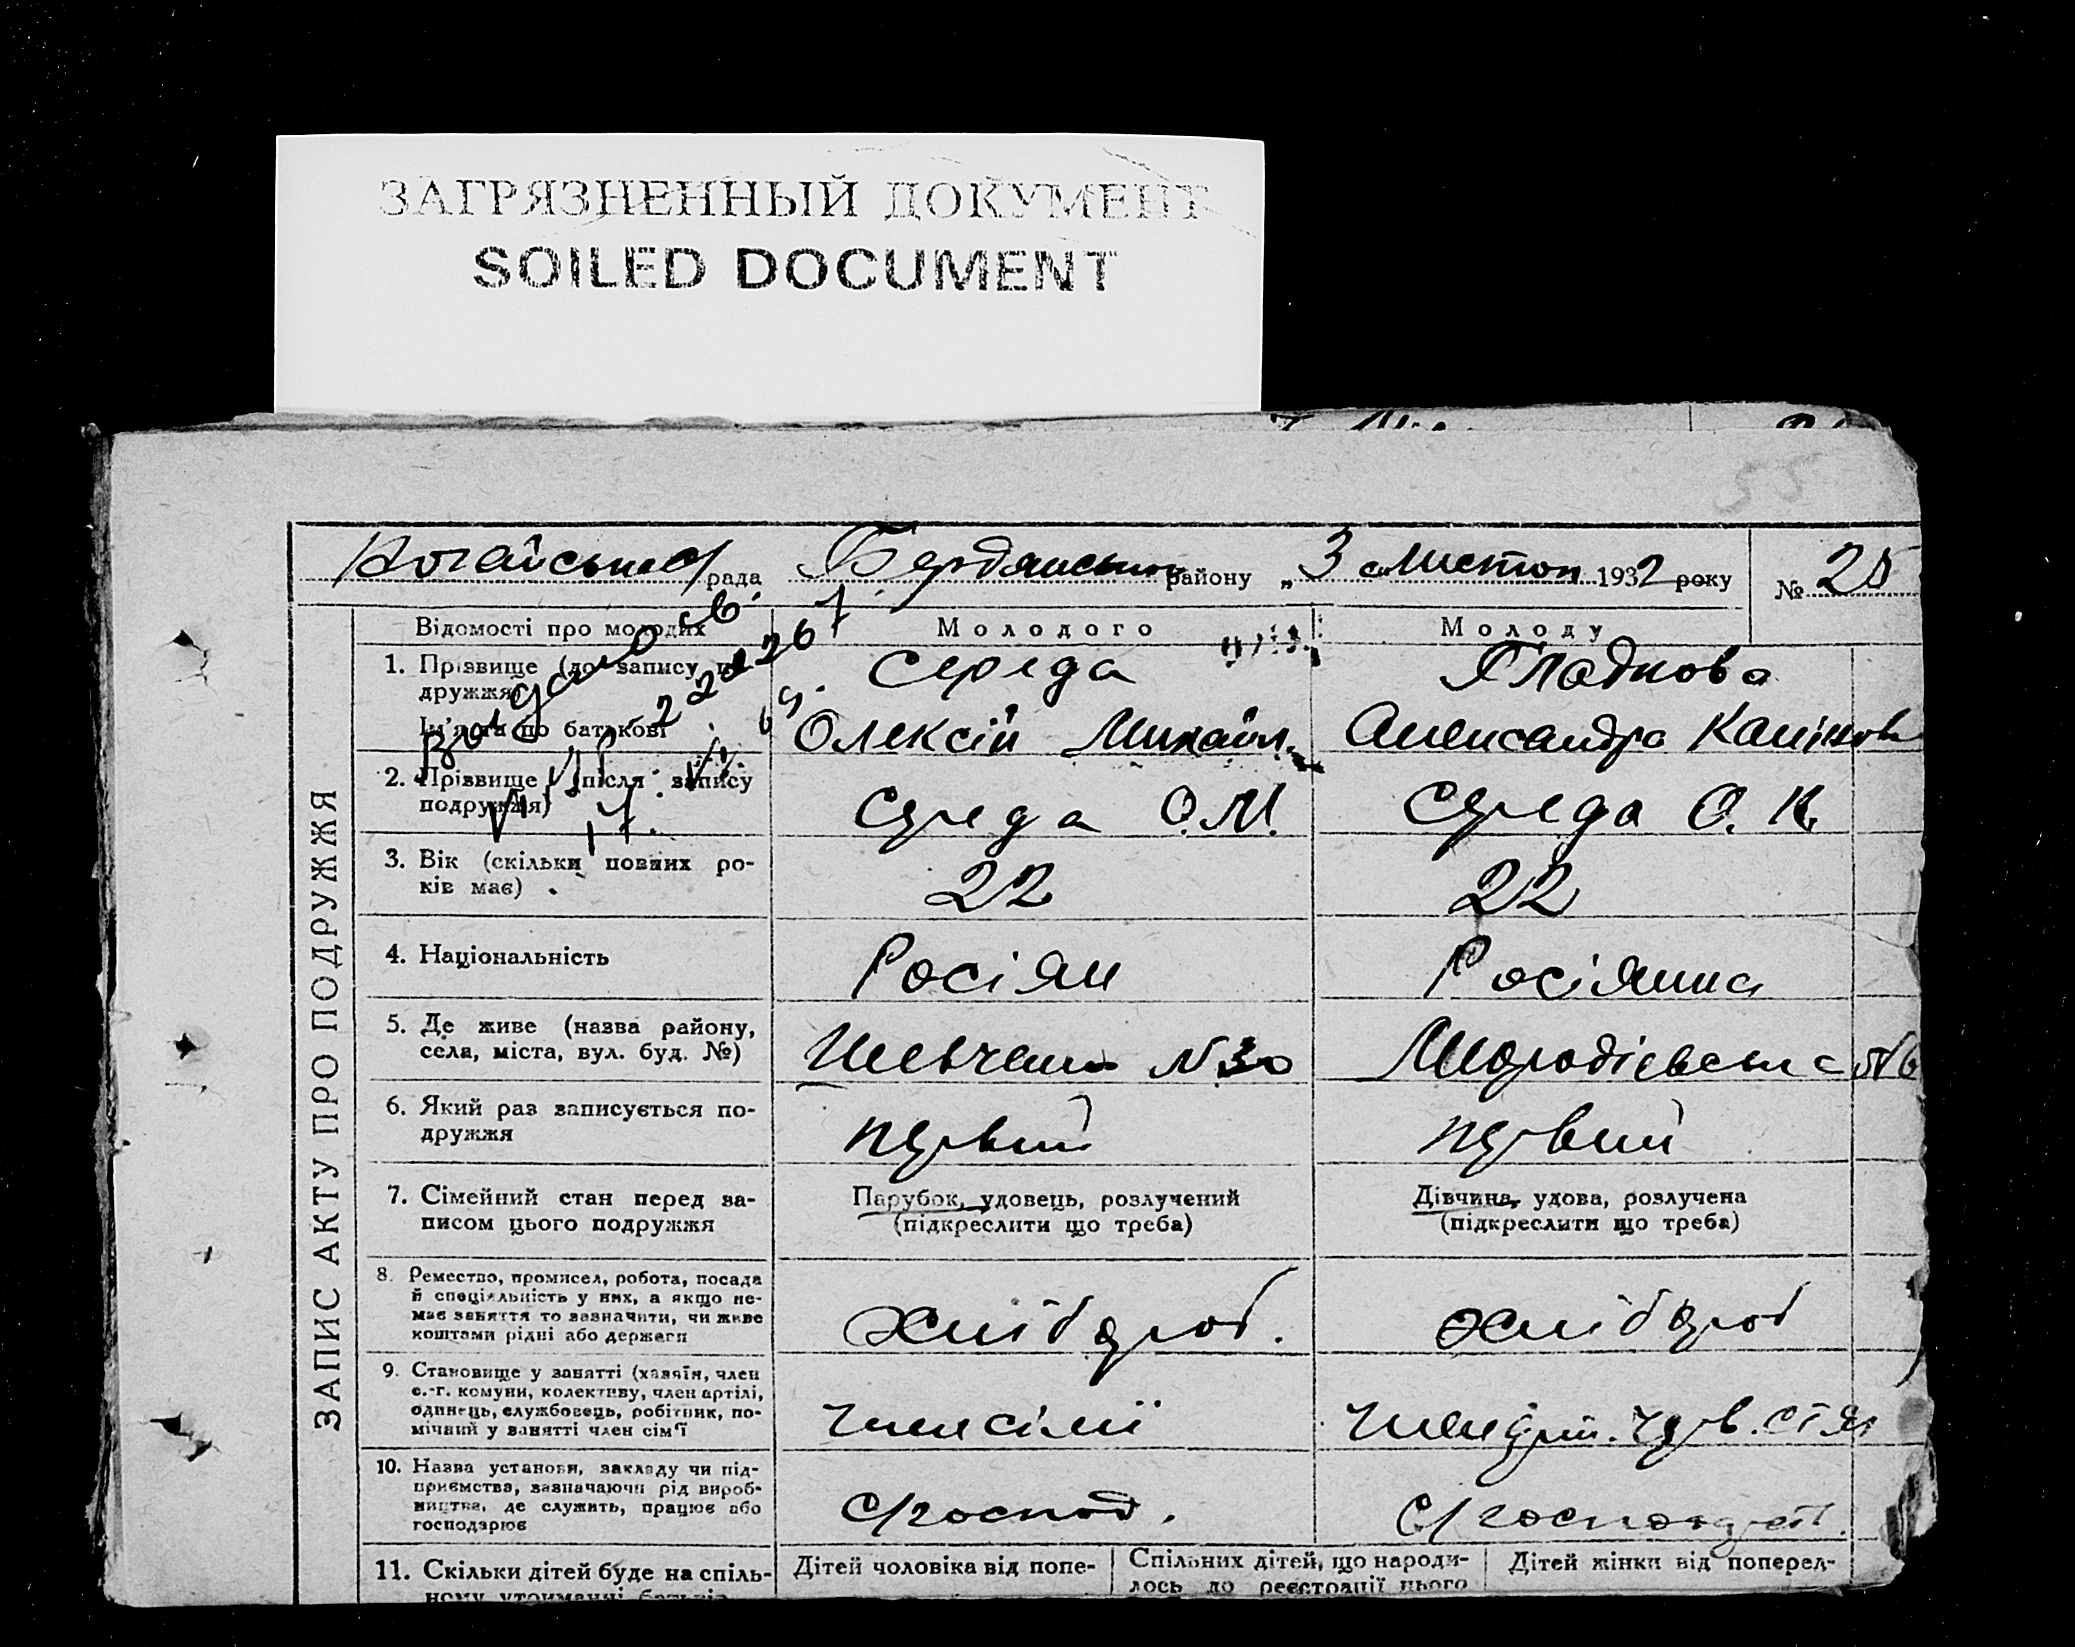 ЗАГРЯЗНЕННЫЙ ДОКУМЕНТ
SOILED DOCUMENT
Ногайська рада Бердянськ району „3 Листоп 1932 року № 25
ЗАПИС АКТУ ПРО ПОДРУЖЖЯ
Відомості про молодих Молодого Молоду
1. Прізвище (до запису по-
дружжя) Середа Гладкова
Ім'я та по батькові Олексій Михайл. Александра
2. Прізвище (після запису
подружжя) Середа О.М. Середа О. К.
Видано св.
3. Вік (скільки повних ро-
ків має) 22 22
4. Національність Росіян Росіянка
5. Де живе (назва району,
села, міста, вул. буд. №) Шевченк N 30
6. Який раз записується по-
дружжя первий первий
7. Сімейний стан перед за-
писом цього подружжя
Парубок, удовець, розлучений
(підкреслити що треба)
Дівчина, удова, розлучена
(підкреслити що треба)
8. Ремество, промисел, робота, посада
й спеціяльність у них, а якщо не-
має заняття то зазначити, чи живе
коштами рідні або держави
хлібороб. хлібороб
9. Становище у занятті (хазяїн, член
с.-г. комуни, колективу, член артілі,
одинець, службовець, робітник, по-
мічний у занятті член сім'ї
член сімї член
10. Назва установи, закладу чи під-
приємства, зазначаючи рід вироб-
ництва, де служить, працює або
господарює
с/господ. с/господарст.
11. Скільки дітей буде на спіль-
ному утриманні батьків
Дітей чоловіка від попе-
Спільних дітей, що народи-
лось до реєстрації цього
Дітей жінки від поперед-